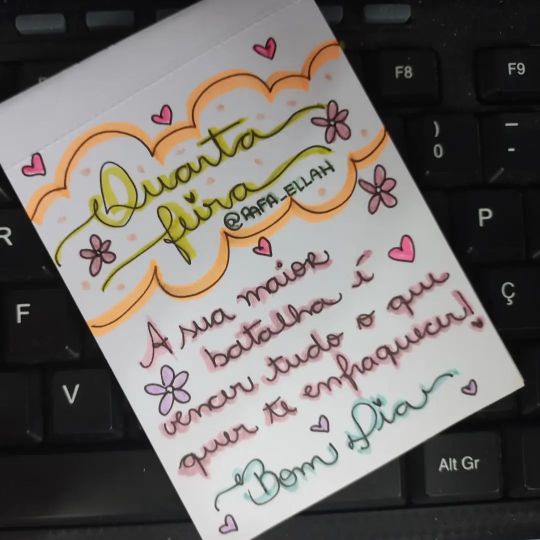 Quarta
feira
@RAFA_ELLAH
A sua maior
batalha é
vencer tudo o que
quer te enfraquecer!
Bom Dia
F8
F9
)
0
_
-
R
P
F
Ç
V
Alt Gr